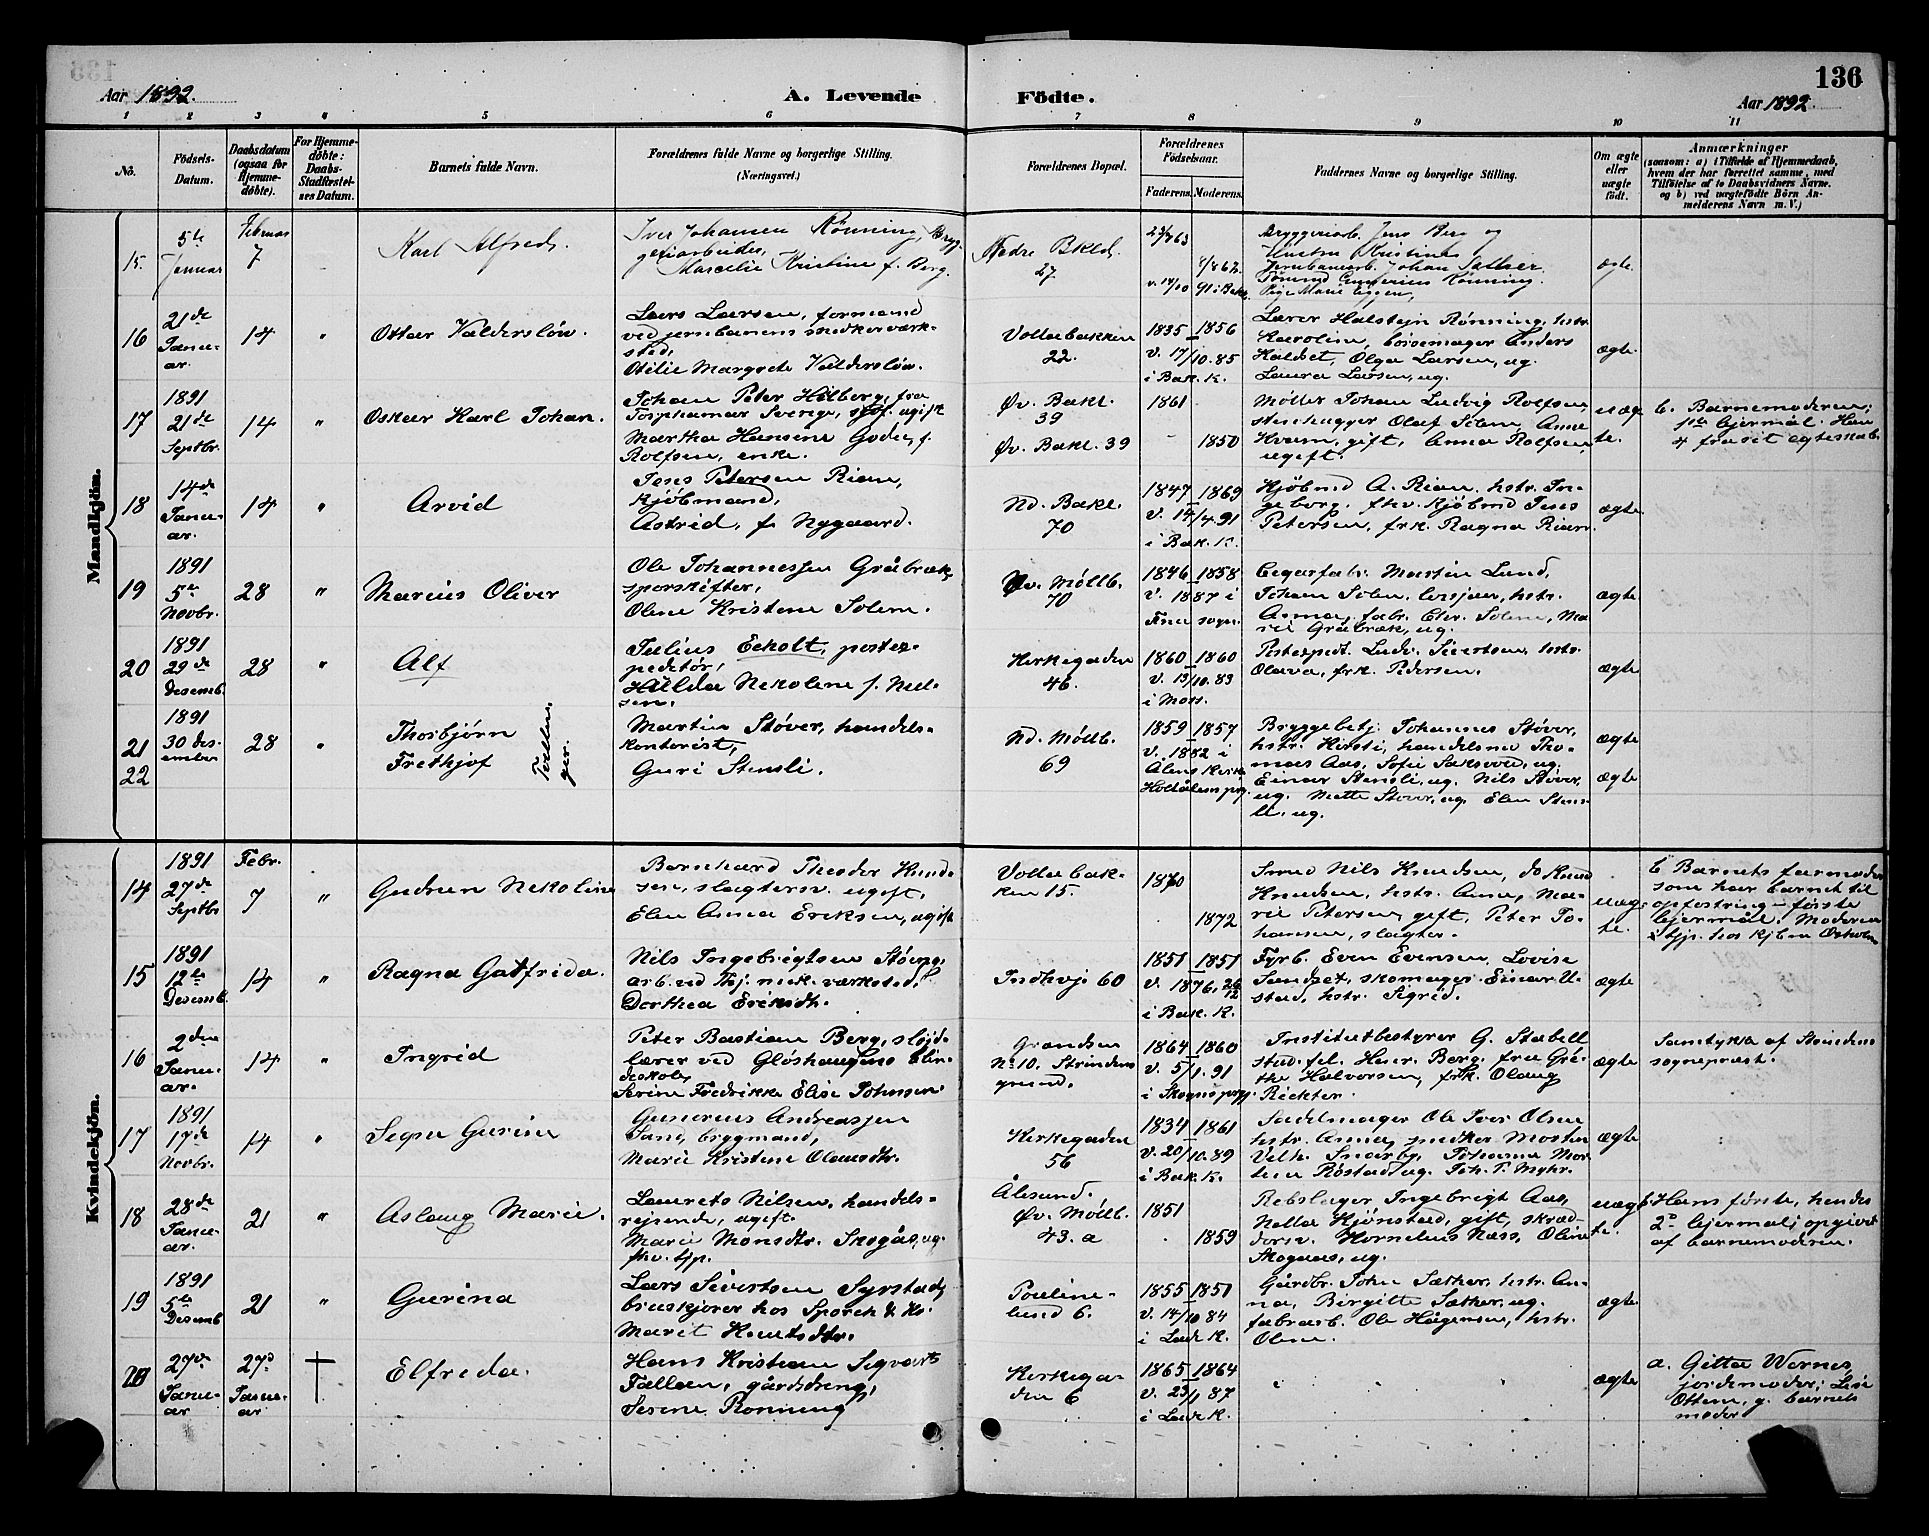 136
Aar 1892.
A. Levende
Födte.
Aar 1892
1 2 3 4 5 6 7 8 9 10 11
No.
Födsels-
Datum.
Daabsdatum
(ogsaa for
Hjemme-
döbte).
For Hjemme-
döbte:
Daabs-
Stadfæstel-
ses Datum.
Barnets fulde Navn.
Forældrenes fulde Navne og borgerlige Stilling.
(Næringsvei.)
Forældrenes Bopæl.
Forældrenes
Födselsaar.
Faderens. Moderens.
Faddernes Navne og borgerlige Stilling.
Om ægte
eller
uægte
födt.
Anmærkninger
(saasom: a) i Tilfælde af Hjemmedaab,
hvem der har forrettet samme, med
Tilföielse af to Daabsvidners Navne,
og b) ved uægtefödte Börn An-
melderens Navn m. V.)
Mandkjön.
15.
5te
Januar
Februar
7
Karl Alfred.
Iver Johansen Rønning, Bryg-
geriarbeider,
Marcelie Kristine f. Berg.
Nedre Bkld.
27.
Bryggeriarb. Jens Berg og
Hustru Kristine,
Jernbanearb. Johan Sæther.
Pige Marie Eggen,
ægte.
16
21de
Janu-
ar.
14
"
Ottar Valdersløv.
Lars Larsen, formand
ved jernbanens snedkerværk-
sted,
Otilie Margrete Valdersløv.
Vollabakken
22.
1835 1856
v. 17/10.85
i Bak. K.
Lærer Halstejn Rønning, hstr.
Karoline, børsemager Anders
Haldset, Olga Larsen, ug.
Laura Larsen, ug.
ægte.
17
1891
21de
Septbr.
14
"
Oskar Karl Johan.
Johan Peter Hilberg, fra
Torphamar Sverige, ugift
Martha Hansine Gode, f.
Rolfsen, enke.
Øv. Bakl.
39
Øv. Bakl. 39
1861
1850
Møller Johan Ludvig Rolfsen,
stenhugger Olaf Solem, Anne
Hvam, gift, Anna Rolfsen,
ugift.
uæg-
te.
b. Barnemoderen,
1ste lejermål. Hun
4 fra sit egteskab.
18
14de
Janu-
ar.
14
"
Arvid
Jens Petersen Rian,
kjøbmand,
Astrid, f. Nygaard.
Nd. Bakl.
70
1847 1869
v. 14/4.91
i Bak. K.
Kjøbmd A. Rian, hstr. In-
geborg, fhv. kjøbmd Jens
Petersen, frk. Ragna Rian.
ægte
19
1891
5te
Novbr.
28
"
Marius Oliver
Ole Johannessen Gråbræk,
sporskifter,
Oline Kristine Solem.
Øv. Møllb.
70
1846 1858
v. 1887 i
sogn.
Cigarfabr. Martin Lund,
Johan Solem, hstr.
Anna, fabr. Chr. Solem, Ma-
rie Gråbræk, ug.
ægte
20
1891
29de
desemb.
28
"
Alf
Julius Eckolt, postex-
peditør,
Hilda Nikoline f. Niel-
sen.
Kirkegaden
46.
1860 1860
v. 13/10.83
i Moss.
Postexpdt. Ludv. Sivertsen, hstr.
Olava, frk. Pedersen.
ægte
21
22
1891
30 des-
ember
28
"
Thorbjørn
Frethjof
Tvillin-
ger.
Martin Støver, handels-
kontorist,
Guri Stensli.
Nd. Møllb.
69
1859 1857
v. 1882 i
Ålens kirke
Holtålens prg.
Bryggebetj. Johannes Støver,
hstr. Kirsti, handelsmd Tho-
mas Aas, Sofie Saksvold, ug.
Einar Stensli, ug. Nils Støver,
ug. Mette Støver, ug. Elen Stens-
li, ug.
ægte
ægte
Kvindekjön.
14
1891
27de
Septbr
Febr.
7
"
Gudrun Nikoline
Bernhard Theodor Knud-
sen, slagtersv. ugift,
Elen Anna Eriksen, ugift
Vollabak-
ken 15.
1870
1872
Smed Nils Knudsen, do Knud
Knudsen, hstr. Anna, Ma-
rie Petersen, gift, Peter Jo-
hansen, slagter.
uæg-
te.
b Barnets farmoder
som har barnet til
opfostring - første
lejermål. Moderen
15
1891
12te
Desemb.
14
"
Ragna Gatfrida.
Nils Ingebrigtsen Støren,
arb. ved Thj. mek. værksted,
Dorthea Eriksdtr.
Indhvj. 60
1851 1851
v. 1876, 26/12
i Bak. K.
Fyrb. Even Evensen, Lovise
Sandset, skomager Einar U-
stad, hstr. Sigrid.
ægte
16
2den
Janu-
ar.
14
"
Ingrid
Peter Bastian Berg, sløjd-
lærer ved Gløshaugens blin-
deskole,
Serine Fredrikke Elise Johnsen
Granden
No 10. Strinden
grund.
1864 1860
v. 5/1.91
i Skogns prgj.
Institutbestyrer G. Stabell
stud. fil. Hans Berg, fru Gre-
the Halvorsen, frk. Olaug
Richter.
ægte
Samtykke af Strindens
sogneprest.
17
1891
17de
Novbr.
14
"
Signe Gurine
Gunerius Andreassen
Sane, brygmand,
Marie Kristine Olausdtr.
Kirkegaden
56
1834 1861
v. 20/10.89
i Bak. K.
Sadelmager Ole Iver Olsen
hstr. Anna, snedker Morten
Velh. Snarby, Johanna Mar-
tea Røstad, ug. Joh. P. Myhr.
ægte
18
28de
Janu-
ar.
21
"
Aslaug Marie.
Laurets Nilsen, handels-
rejsende, ugift.
Marie Monsdtr. Skogås, ug.
fhv. tjp.
Ålesund.
Øv. Møllb.
43. a
1851
1859
Rebslager Ingebrigt Aas,
Nella Hjønstad, gift, skræd-
dersv. Kornelius Næss, Oline
Skogaas, ug.
uæg-
te.
Hans første, hendes
2det lejermål; opgivet
af barnemoderen.
19
1891
5te
Desemb
21
"
Gurina
Lars Sivertsen Syrstad,
bruskjører hos Sporck & Ko.
Marit Knutsdtr.
Pauline-
lund 6.
1855 1851
v. 14/10 84
i Lade K.
Gårdbr. John Sæther, hstr. An-
na, Birgitte Sæther, ug.
fabrarb. Ole Hågensen, hstr.
Oline.
ægte
20
27de
Janu-
ar
27de
Janu-
ar
†
Elfrida.
Hans Kristian Sigvart
Fallan, gårdsdreng,
Serine Rønning
Kirkega-
den 6
1865 1864
v. 23/1 87
i Lade K.
ægte
a. Gitta Wernes,
jordemoder; Lise
Ottem, g. barnets
moder